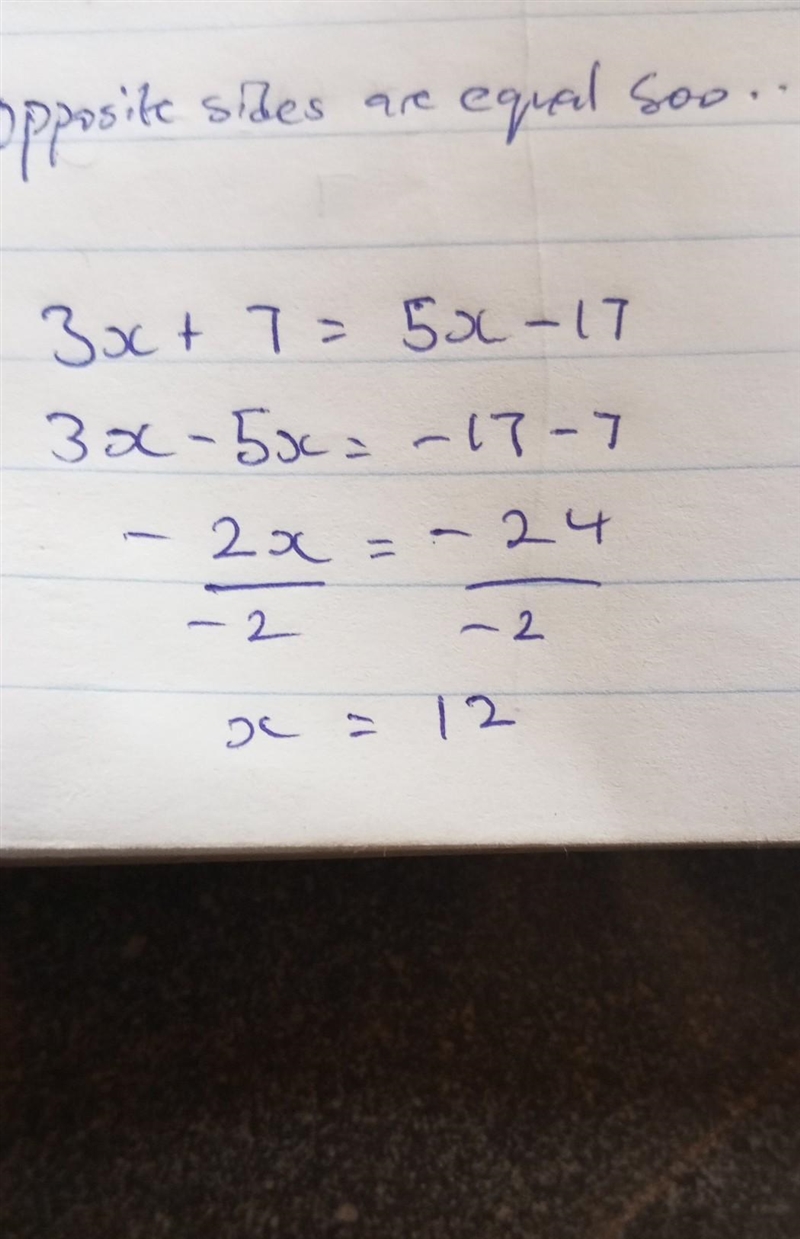 Opposite sides are equal soo..
3x + 7 = 5x - 17
3x - 5x = -17 - 7
- 2x = - 24
-2 -2
x = 12